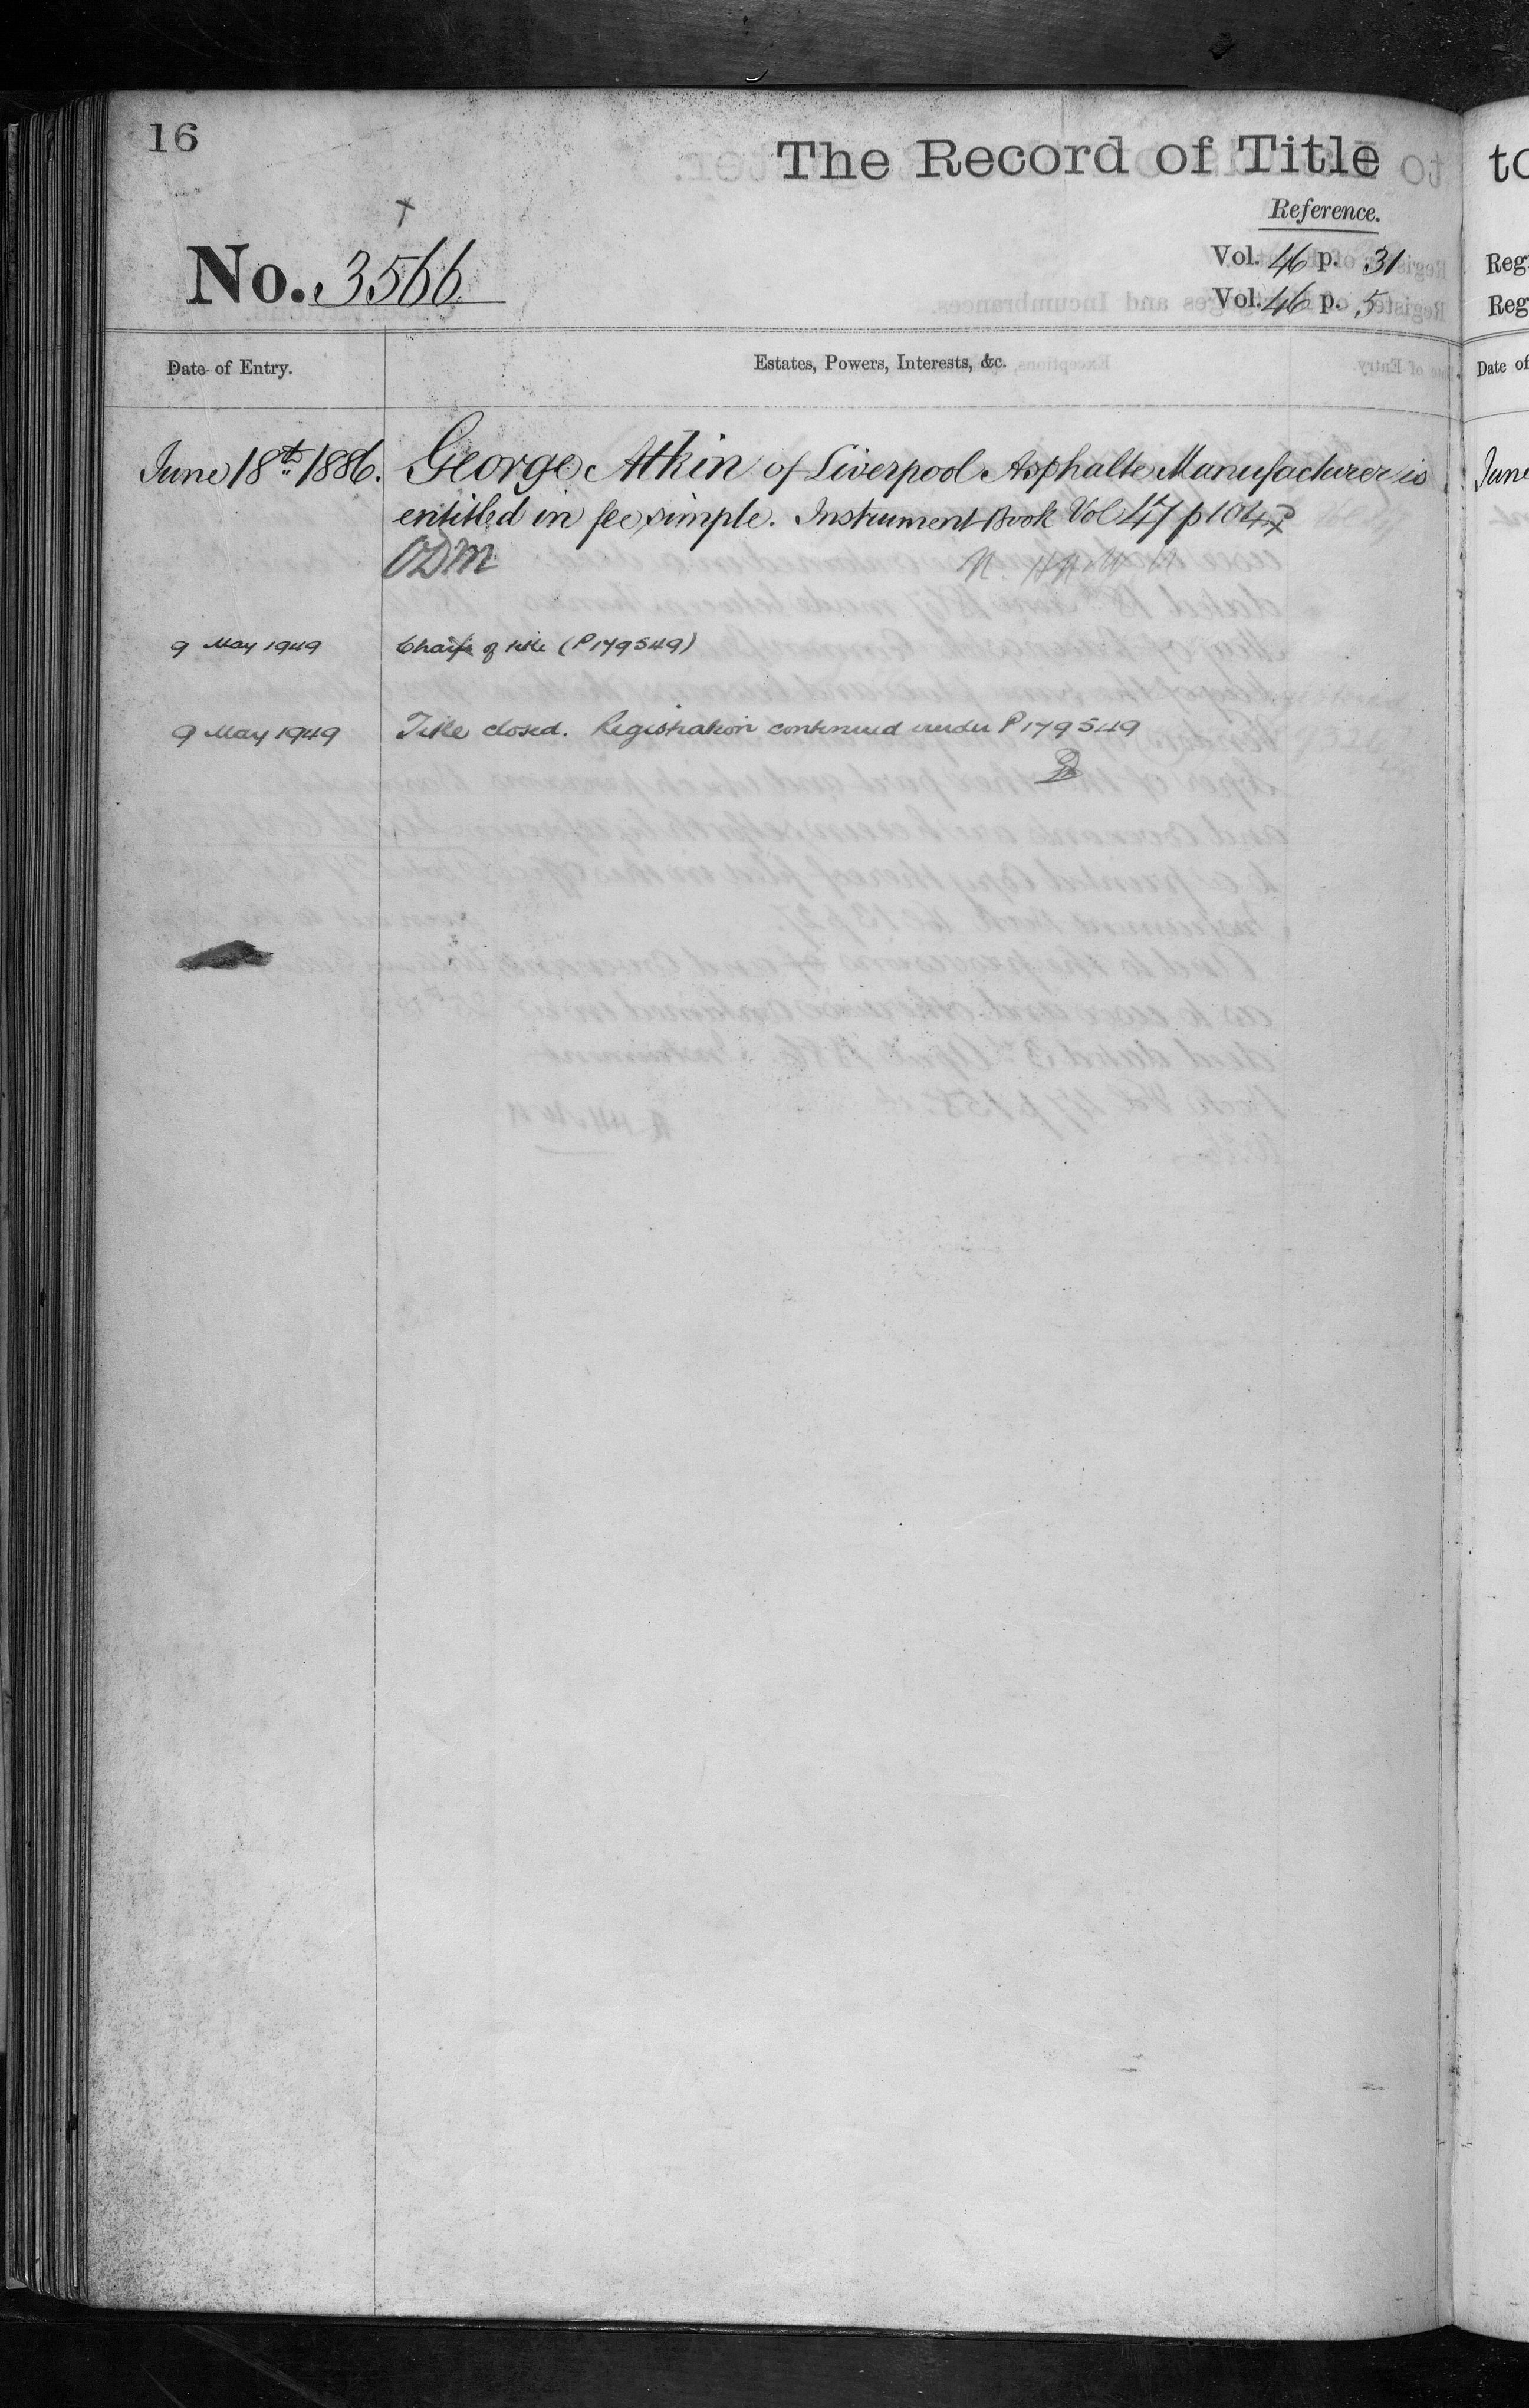 16
The Record of Title
Reference.
No. 3566
Vol. 46 p. 31
Vol. 46 p. 5
Date of Entry.
Estates, Powers, Interests, &c.
June 18th 1886. George Atkin of Liverpool Asphalte Manufacturer is
entitled in fee simple. Instrument Book Vol 47 p 104
ODM
9 May 1949 of title (P179549)
9 May 1949 Title closed. Registration continued under P179549
to
Reg
Reg
Date of
June